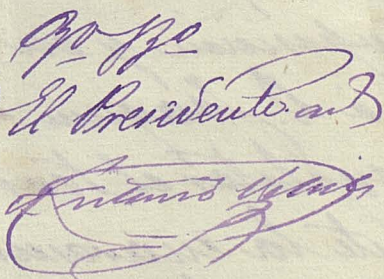 Vº Bº
El Presidente
Antonio